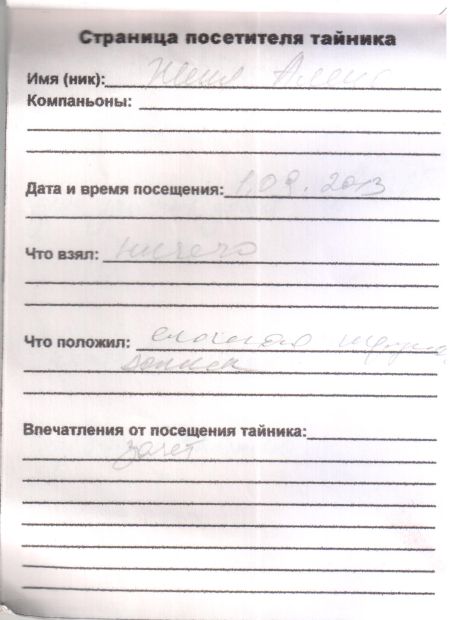 Страница посетителя тайника
Имя (ник): Женя
Компаньоны:
Дата и время посещения: 1.09.2013
Что взял: ничего
Что положил:
Впечатления от посещения тайника:
зачет